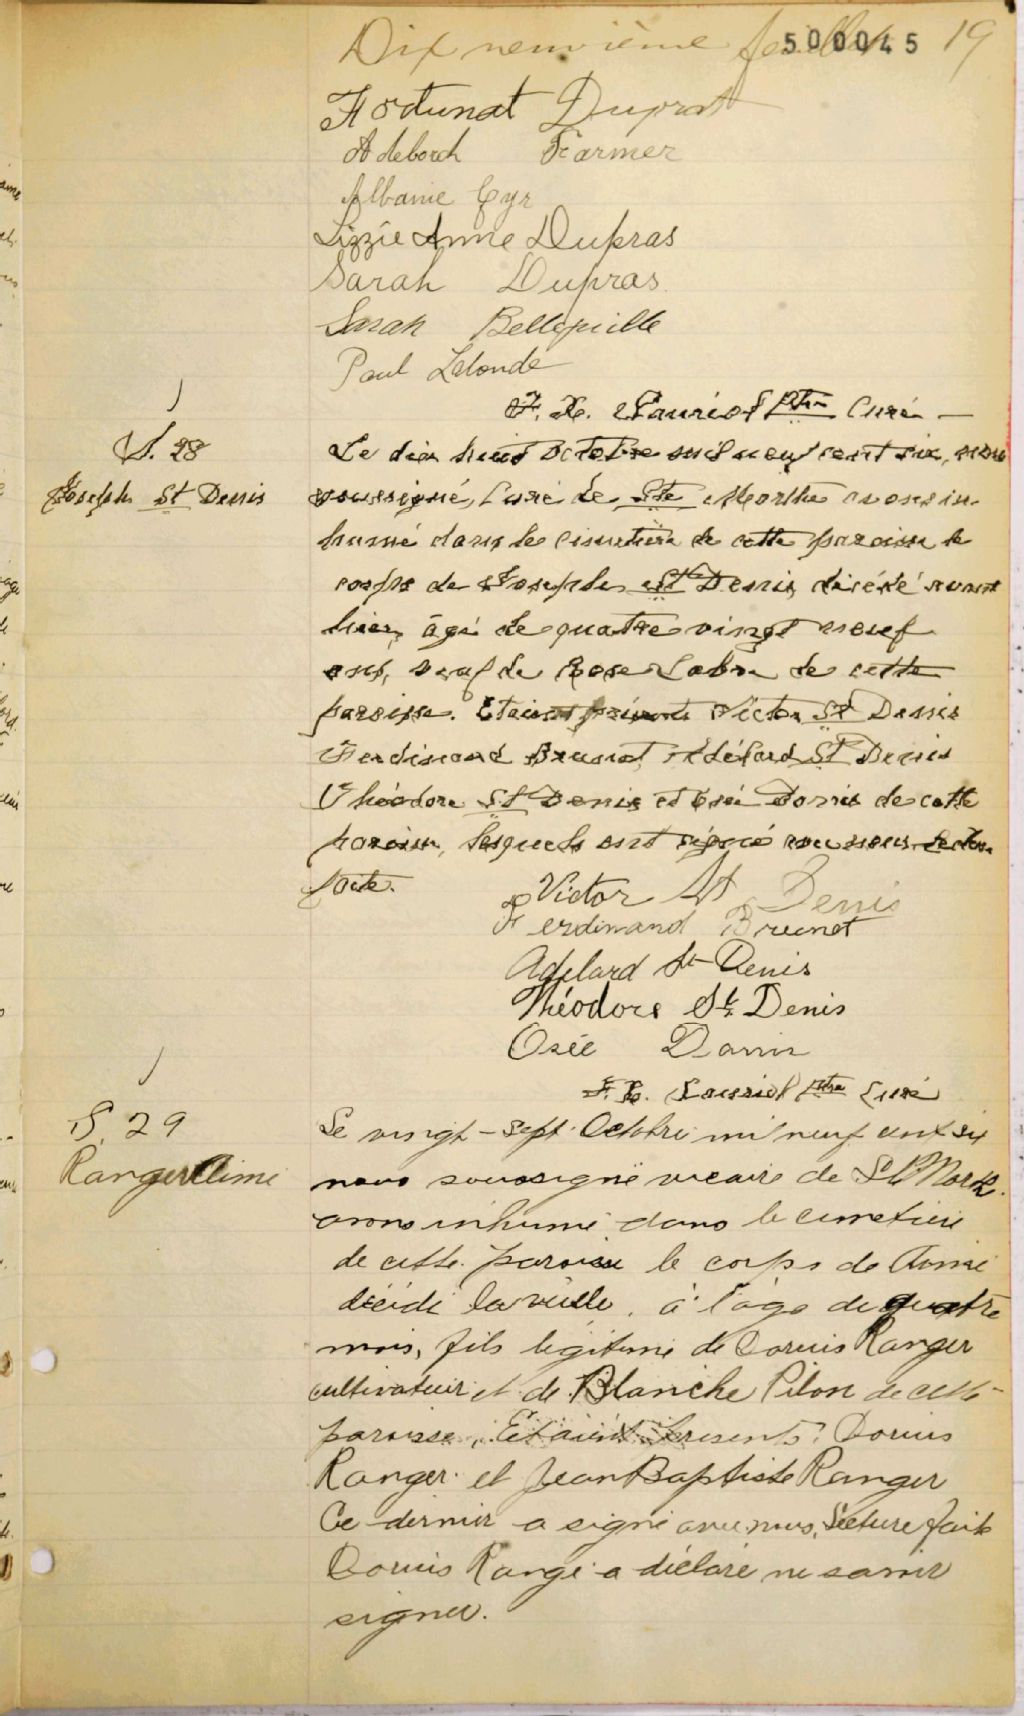 Dix neuvième feuillet 500045 19
Fortunat Duprat
Adeborch Farmer
Albanie Cyr
Lizzie Anne Dupras
Sarah Dupras
Sarah Bellefeuille
Paul Lalonde
F. X. Lauriol ptre Curé
S. 28
Joseph St Denis
Le dix huit Octobre mil neuf cent six, nous
soussigné, Curé de Ste Marthe avons in-
humé dans le cimetière de cette paroisse le
corps de Joseph St Denis, décédé avant
hier, âgé de quatre vingt neuf
ans, veuf de Rose de cette
paroisse. Etaient présents Victor St Denis
Ferdinand Brunet, Adélard St Denis
Théodore St Denis et Osée Danis de cette
paroisse, lesquels ont signé avec nous. Lecture
faite.
Victor St Denis
Ferdinand Brunet
Adelard St Denis
Théodore St. Denis
Osée Danis
F. X. Lauriol ptre Curé
S. 29
Ranger Aimé
Le vingt-sept Octobre mil neuf cent six
nous soussigné vicaire de Ste Marthe
avons inhumé dans le cimetière
de cette paroisse le corps de Aimé
décédé la veille, à l'âge de quatre
mois, fils légitime de Dorius Ranger
cultivateur et de Blanche Pilon de cette
paroisse, Etaient Présents. Dorius
Ranger et Jean Baptiste Ranger
Ce dernier a signé avec nous, Lecture faite
Dorius Ranger a déclaré ne savoir
signer.